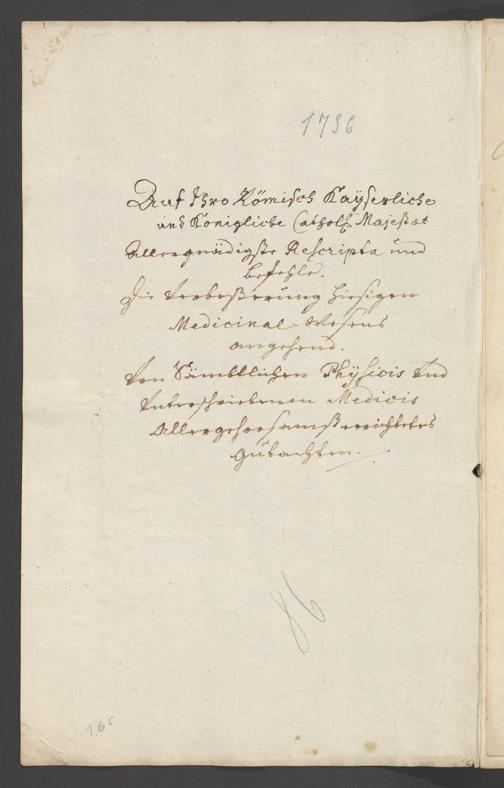 1736
Auf Ihro Römisch Kaÿserliche
und Königliche Cathol. Majestæt
Allergnädigste Rescripta und
Befehle.
Die Verbeßerung hiesigen
Medicinal-Wesens
angehend.
Von Sämbtlichen Physicis und
Unterschriebenen Medicis
Allergehorsamst errichtetes
Gutachten.